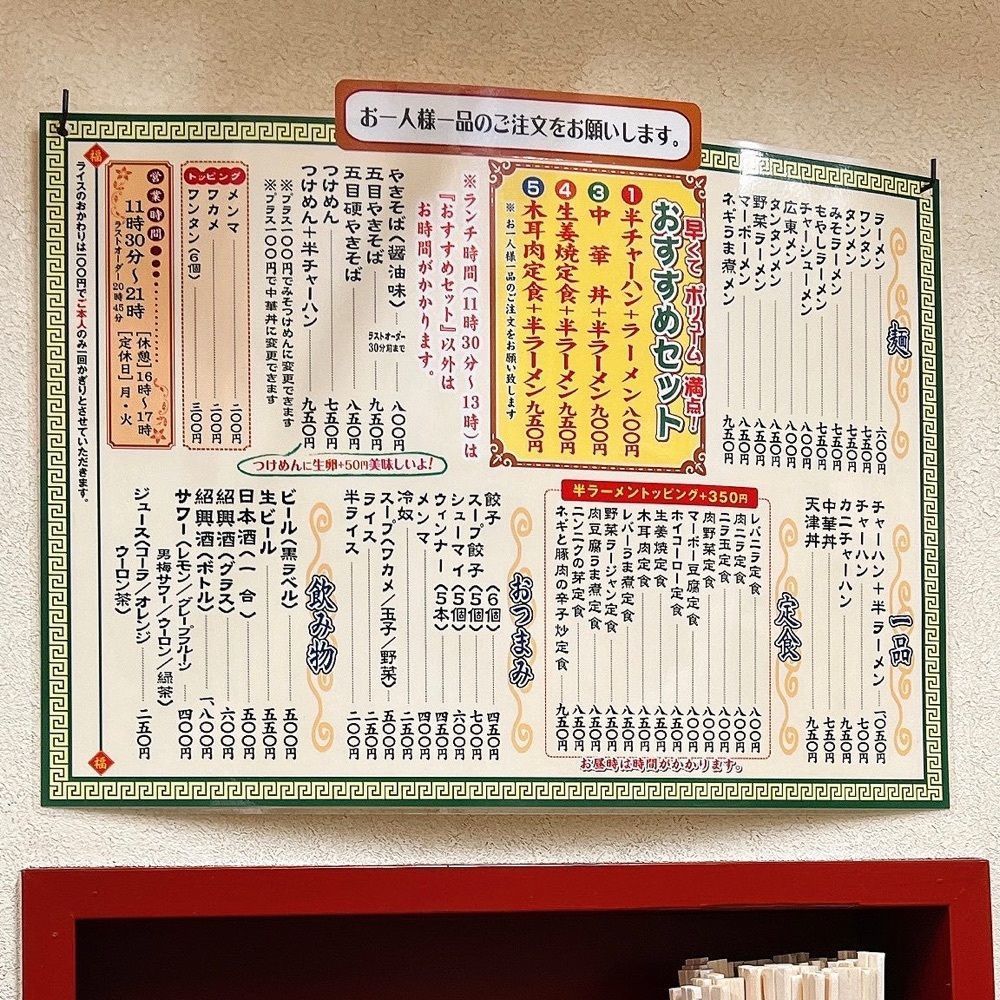 お一人様一品のご注文をお願いします。
麺
ラーメン 六〇〇円
ワンタン 七五〇円
タンメン 七五〇円
みそラーメン 七五〇円
もやしラーメン 七五〇円
チャーシューメン 八〇〇円
広東メン 八〇〇円
タンタンメン 八〇〇円
野菜ラーメン 八五〇円
マーボーメン 九五〇円
ネギうま煮メン 九五〇円
早くて ボリューム 満点！
おすすめセット
1 半チャーハン＋ラーメン 八〇〇円
3 中華丼＋半ラーメン 九〇〇円
4 生姜焼定食＋半ラーメン 九五〇円
5 木耳肉定食＋半ラーメン 九五〇円
※お一人様一品のご注文をお願い致します
※ランチ時間(11時30分～13時)は
『おすすめセット』以外は
お時間がかかります。
やきそば(醤油味) 八〇〇円
ラストオーダー30分前まで
五目やきそば 九五〇円
五目硬やきそば 八五〇円
つけめん 七五〇円
つけめん＋半チャーハン 九五〇円
※プラス100円でみそつけめんに変更できます
※プラス100円で中華丼に変更できます
つけめんに生卵+50円美味しいよ！
トッピング
メンマ 二〇〇円
ワカメ 二〇〇円
ワンタン(6個) 三〇〇円
営業時間
11時30分～21時
ラストオーダー20時45分
[休憩]16時～17時
[定休日]月・火
福
ライスのおかわりは100円でご本人のみ一回かぎりとさせていただきます。
福
一品
チャーハン＋半ラーメン 一、〇五〇円
チャーハン 七〇〇円
カニチャーハン 九五〇円
中華丼 七五〇円
天津丼 九五〇円
定食
半ラーメントッピング+350円
レバニラ定食 八〇〇円
肉ニラ定食 八〇〇円
ニラ玉定食 八〇〇円
肉野菜定食 八〇〇円
マーボー豆腐定食 八〇〇円
ホイコーロー定食 八五〇円
生姜焼定食 八五〇円
木耳肉定食 八五〇円
レバーうま煮定食 八五〇円
野菜ラージャン定食 八五〇円
肉豆腐うま煮定食 八五〇円
ニンニクの芽定食 八五〇円
ネギと豚肉の辛子炒定食 九五〇円
お昼時は時間がかかります。
おつまみ
餃子(6個) 四五〇円
スープ餃子(5個) 五〇〇円
シューマイ(5個) 六〇〇円
ウィンナー(5本) 四〇〇円
メンマ 四〇〇円
冷奴 二五〇円
スープ(ワカメ／玉子／野菜) 五〇〇円
ライス 二五〇円
半ライス 二〇〇円
飲み物
ビール(黒ラベル) 五〇〇円
生ビール 五五〇円
日本酒(一合) 五〇〇円
紹興酒(グラス) 六〇〇円
紹興酒(ボトル) 一、八〇〇円
サワー(レモン／グレープフルーツ 四〇〇円
男梅サワー／ウーロン／緑茶)
ジュース(コーラ／オレンジ 二五〇円
ウーロン茶)